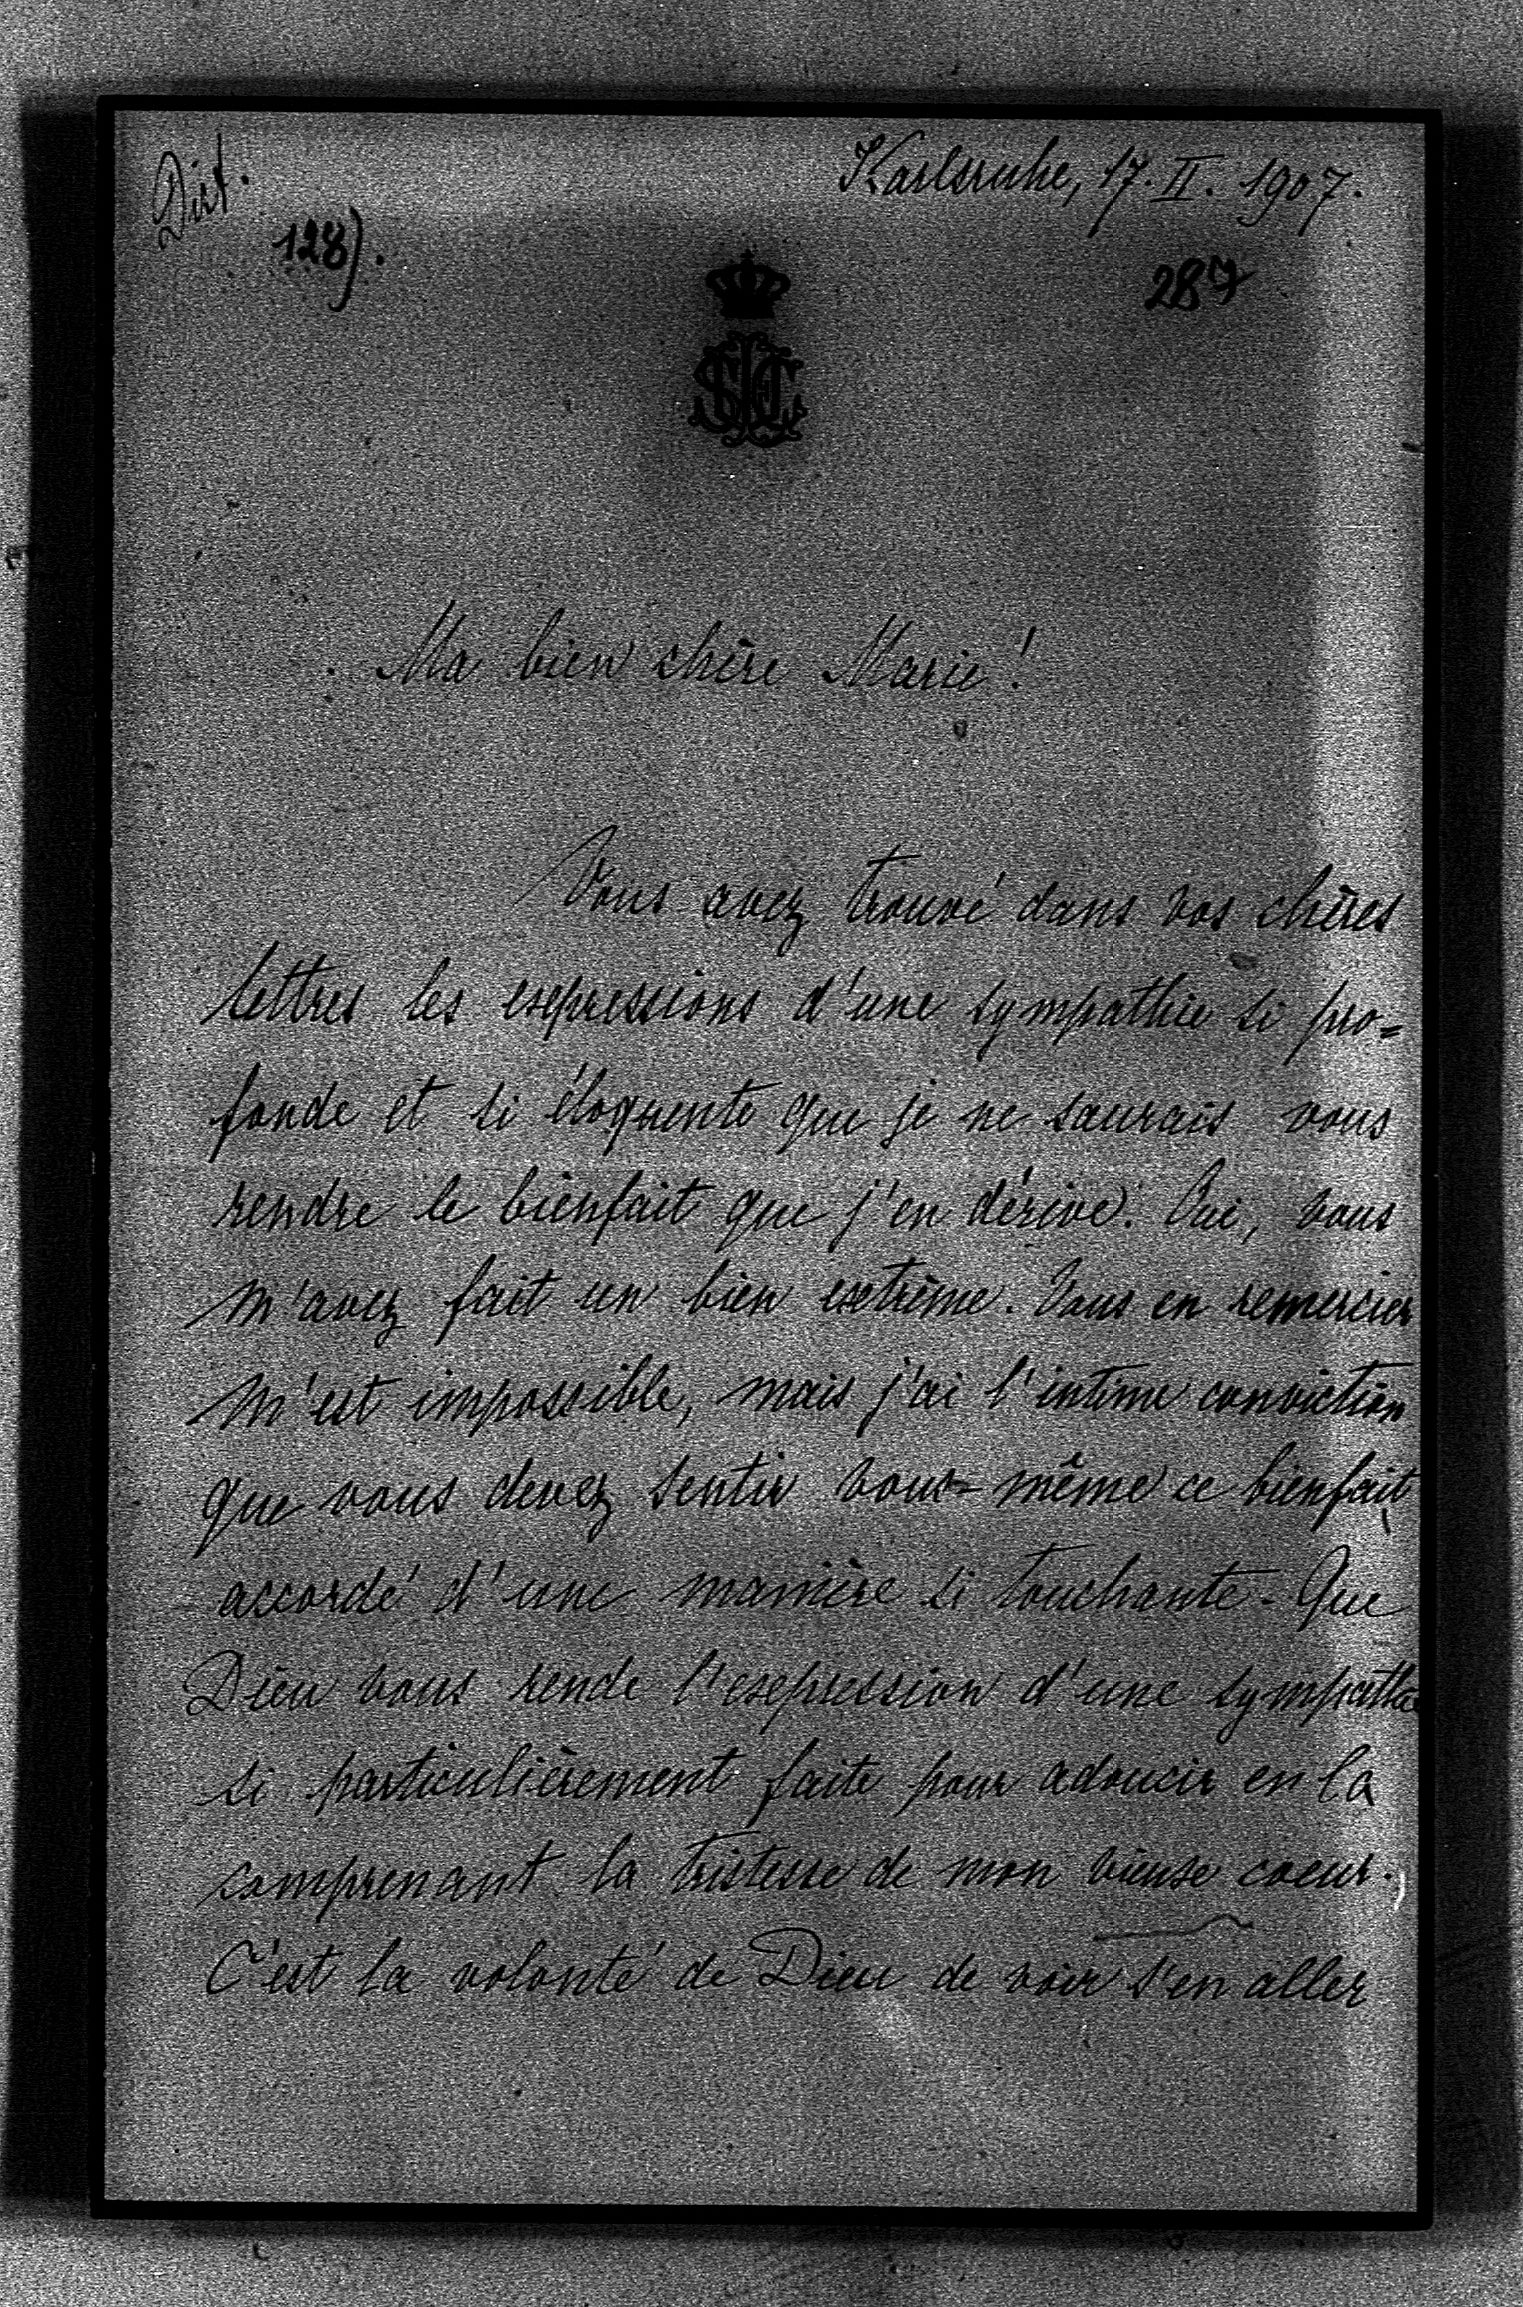 Dikt.
Karlsruhe, 17. II. 1907.
128).
287
Ma bien chère Marie!
Vous avez trouvé dans vos chères
lettres les expressions d'une sympathie si pro=
fonde et si éloquente que je ne saurais vous
rendre le bienfait que j'en dérive. Oui, vous
m'avez fait un bien extrême. Vous en remercier
m'est impossible, mais j'ai l'intime conviction
que vous devez sentir vous-même ce bienfait
accordé d'une manière si touchante. Que
Dieu vous rende l'expression d'une sympathie
si particulièrement faite pour adoucir en la
comprenant la tristesse de mon vieux coeur.
C'est la volonté de Dieu de voir s'en aller